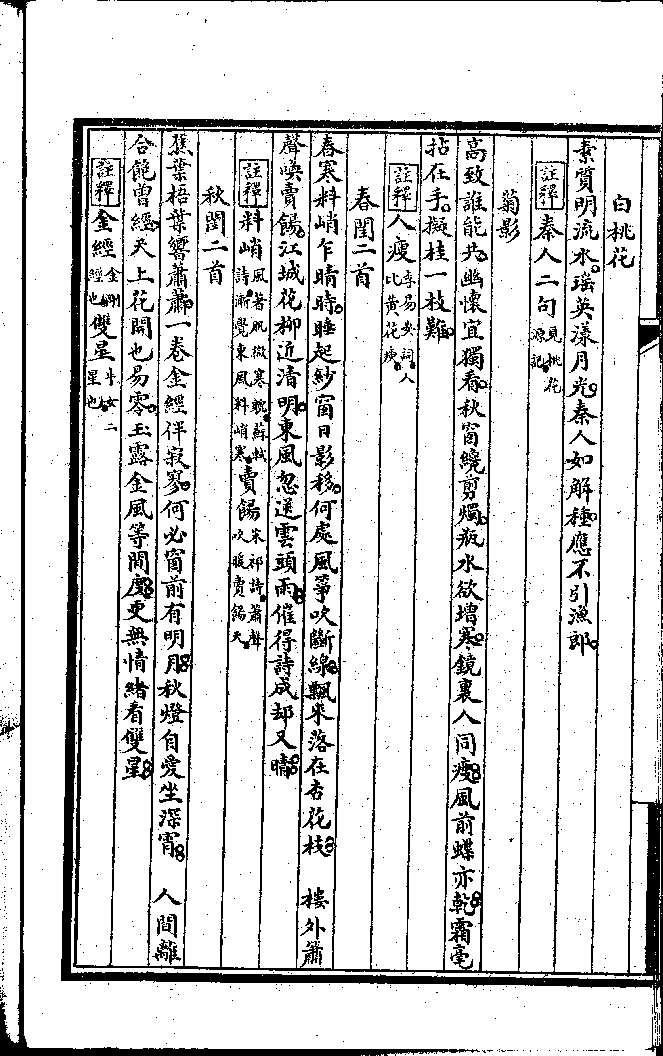 白桃花
素質明流水瑶英漾月光秦人如解種應不引漁郎
註釋 秦人二句 見桃花源記
菊影
高致誰能共幽懷宜獨看秋窗繞剪燭瓶水欲增寒鏡裏人同瘦風前蝶亦乾霜毫
拈在手擬桂一枝難
註釋 人瘦 李易安詞人比黃花瘦
春閨二首
春寒料峭乍晴時睡起紗窗日影移何處風箏吹斷線飄來落在杏花枝 樓外簫
聲喚賣餳江城花柳近清明東風忽送雲頭雨催得詩成却又晴
註釋 料峭 風著肌微寒貌蘇軾詩漸覺東風料峭寒 賣餳 宋祁詩簫聲吹暖賣餳天
秋閨二首
蕉葉梧葉響蕭蕭一卷金經伴寂寥何必窗前有明月秋燈自愛坐深宵 人間離
合飽曾經天上花開也易零玉露金風等閒度更無情緒看雙星
註釋 金經 金剛經也 雙星 牛女二星也